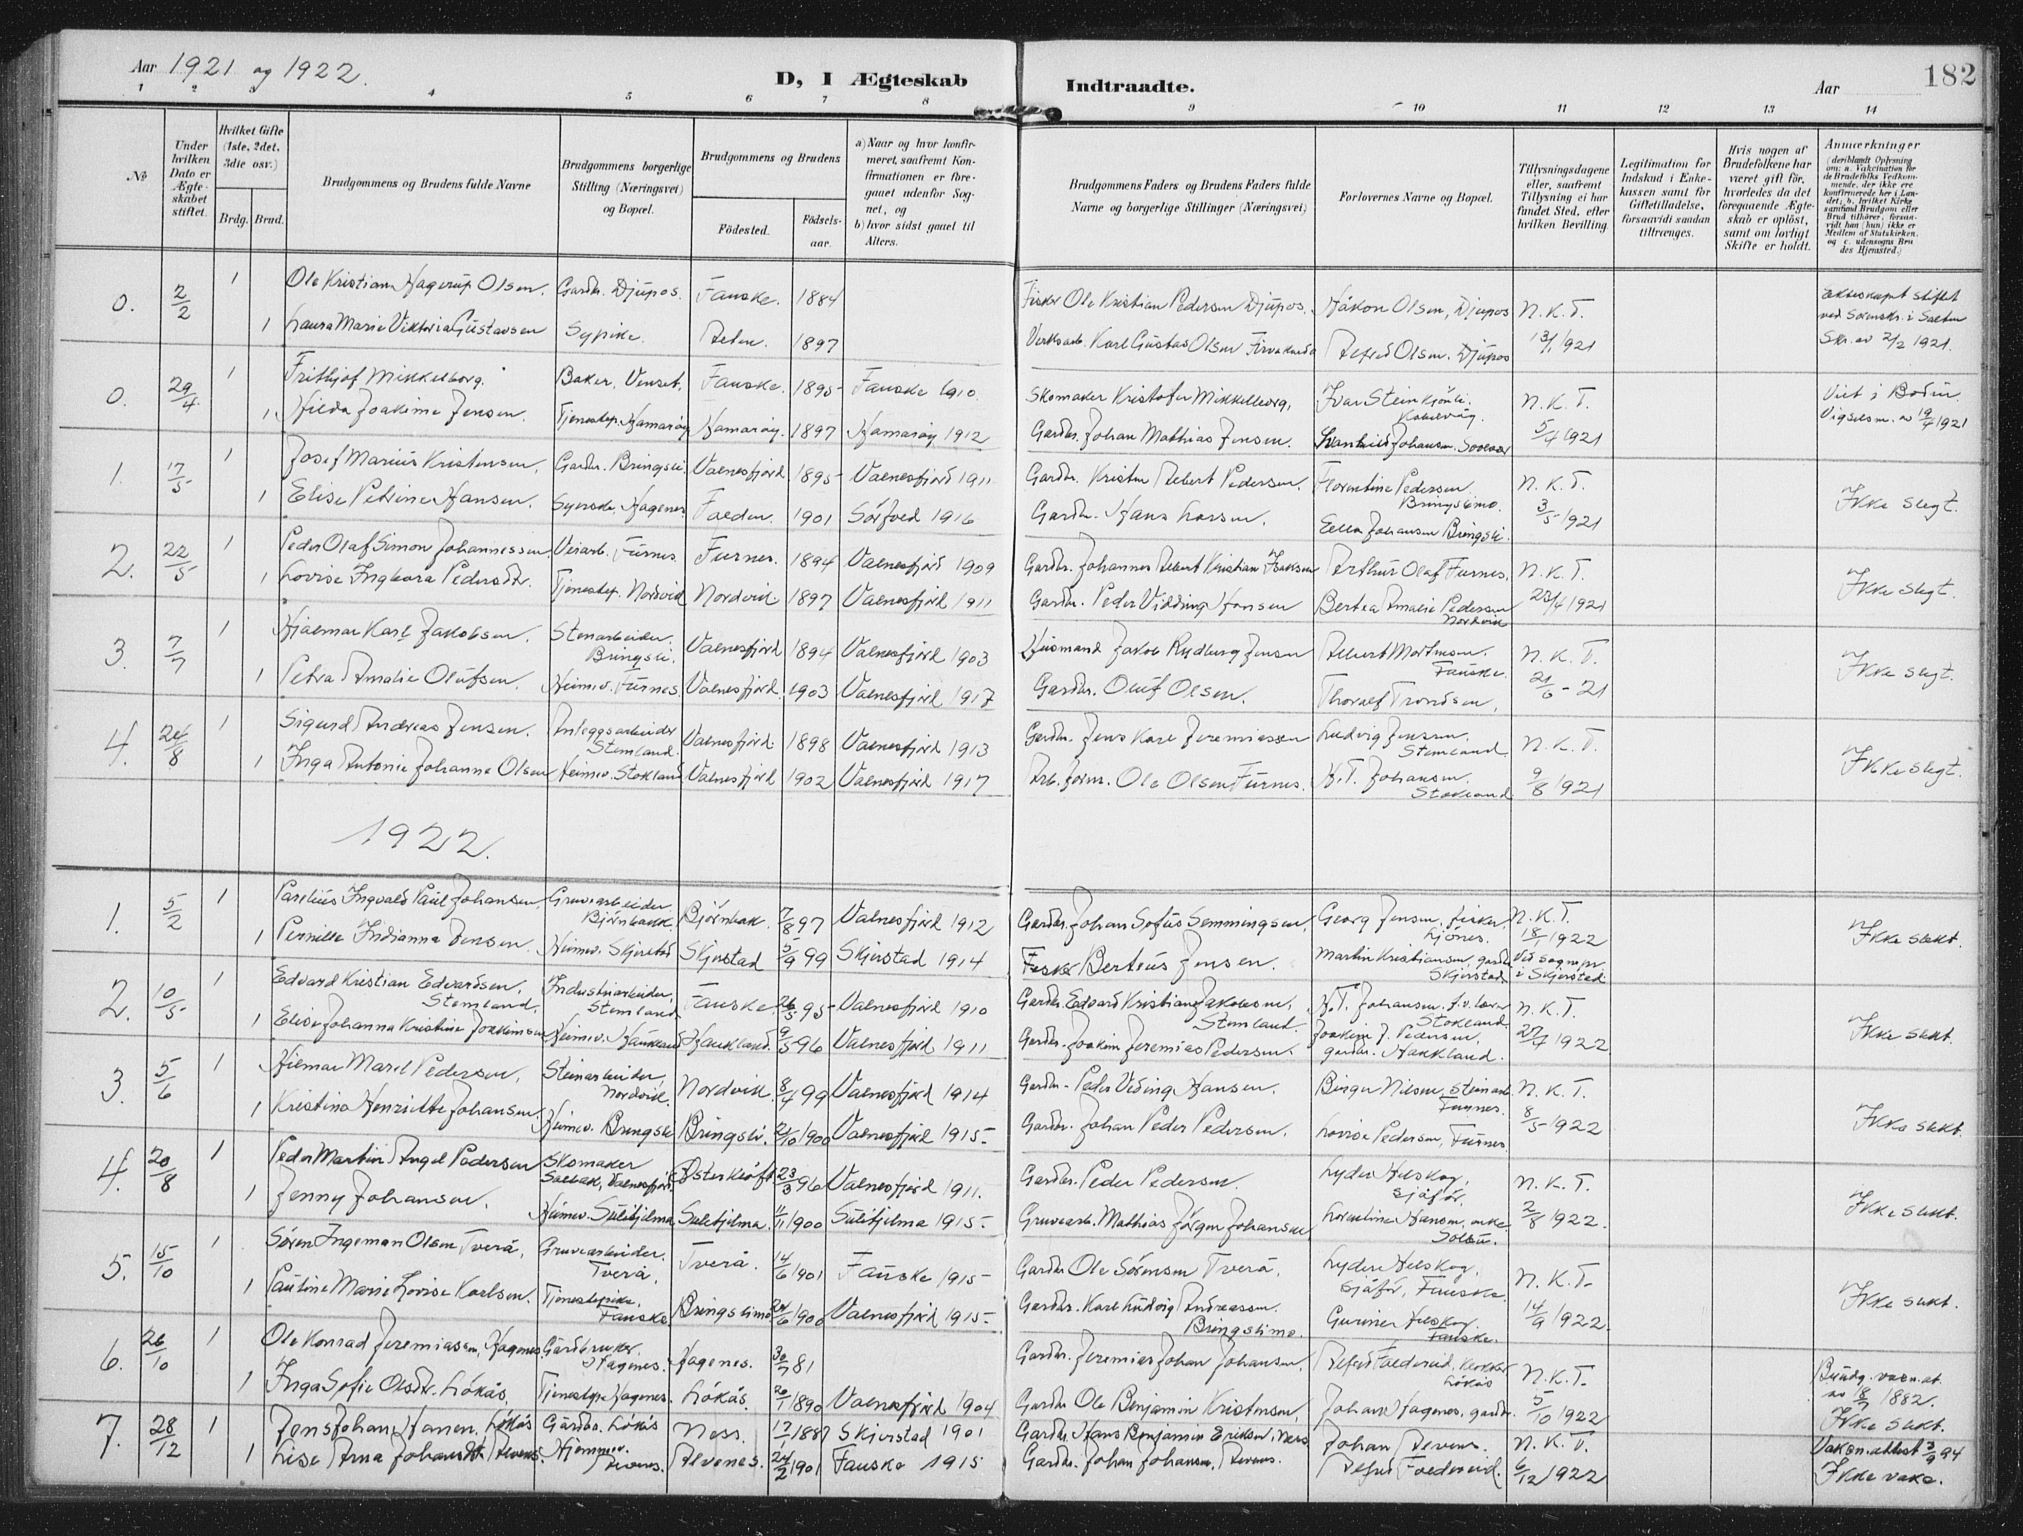 Aar 1921 og 1922.
D, I Ægteskab Indtraadte.
Aar 182
1 2 3 4 5 6 7 8 9 10 11 12 13 14
№
Under hvilken Dato er Ægteskabet stiftet.
Hvilket Gifte (1ste, 2det, 3die osv.)
Brdg. Brud.
Brudgommens og Brudens fulde Navne
Brudgommens borgerlige Stilling (Næringsvei) og Bopæl.
Brudgommens og Brudens
Födested. Födsels-aar.
a) Naar og hvor konfirmeret, saafremt Konfirmationen er foregaaet udenfor Sognet, og
b) hvor sidst gaaet til Alters.
Brudgommens Faders og Brudens Faders fulde Navne og borgerlige Stillinger (Næringsvei)
Forlovernes Navne og Bopæl.
Tillysningsdagene eller, saafremt Tillysning ei har fundet Sted, efter hvilken Bevilling
Legitimation for Indskud i Enkekassen samt for Giftetilladelse, forsaavidt saadan tiltrænges.
Hvis nogen af Brudefolkene har været gift för, hvorledes da det foregaaende Ægteskab er oplöst, samt om lovligt Skifte er holdt.
Anmærkninger
(deriblandt Oplysning om: a. Vakcination for de Brudefolks Vedkommende, der ikke ere konfirmerede her i Landet; b. hvilket Kirkesamfund Brudgom eller Brud tilhörer, forsaavidt han (hun) ikke er Medlem af Statskirken, og c. udensogns Brudes Hjemsted.)
0. 2/2 1 Ole Kristian Hagerup Olsen. Gardbr. Djupos. Fauske. 1884 Fisker Ole Kristian Pedersen Djupos. Håkon Olsen, Djupos N.K.T. Ekteskapet stiftet
1 Laura Marie Viktoria Gustavsen Sypike. 1897 Karl Gustav Olsen Alfred Olsen. Djupos 13/1 1921 ved Sorenskr. i Salten
Skr. av 2/2 1921.
0. 29/4 1 Frithjof Mikkelborg. Baker, Venset. Fauske. 1895 Fauske 1910. Skomaker Kristofer Mikkelborg, Ivar Stein N.K.T. Viet i Bodin.
1 Hilda Joakime Jensen. Tjenestep. Hamarøy Hamarøy. 1897 Hamarøy 1912 Gardbr. Johan Mathias Jensen. Johansen. 5/4 1921 Vigselsm. av 19/4 1921
1. 17/5 1 Josef Marius Kristensen, Gardbr. Bringsli Valnesfjord 1895 Valnesfjord 1911 Gardbr. Kristen Albert Pedersen. Florentine Pedersen Bringslimo. N.K.T. Ikke slegt.
1 Elise Petrine Hansen. Syerske, Hagenes Folden. 1901 Sörfold 1916 Gardbr. Hans Larsen. Ella Johansen Bringsli. 3/5 1921
2. 22/5 1 Peder Olaf Simon Johannessen Veiarb. Furnes Furnes. 1894 Valnesfjord 1909 Gardbr. Johannes Albert Kristian Isaksen Arthur Olaf Furnes. N.K.T. Ikke slegt.
1 Lovise Ingbora Pedersdtr. Tjenestep. Nordvid Nordvik 1897 Valnesfjord 1911 Gardbr. Peder Vidding Hansen Bertea Amalie Pedersen Nordvik 23/4 1921
3. 7/7 1 Hjalmar Karl Jakobsen. Stenarbeider. Bringsli. Valnesfjord 1894 Valnesfjord 1903 Husmand Jakob Rydberg Jensen Albert Mortensen. Fauske. N.K.T. Ikke slegt.
1 Petra Amalie Olufsen. Heimev. Furnes. Valnesfjord. 1903 Valnesfjord 1917 Gardbr. Oluf Olsen. Thoralf Trondsen, 21/6 - 21
4. 24/8 1 Sigurd Andreas Jensen. Anleggsarbeider Stemland. Valnesfjord 1898 Valnesfjord 1913 Gardbr. Jens Karl Jeremiassen Ludvig Jensen. Stemland N.K.T. Ikke slegt.
1 Inga Antonie Johanne Olsen Heimev. Stokland Valnesfjord 1902 Valnesfjord 1917 Arb. form. Ole Olsen Furnes. H.T. Johansen. Stokland 9/8 1921
1922.
1. 5/2 1 Parelius Ingvald Paul Johansen. Gruvearbeider Björnbakk. Björnbak. 7/8 97 Valnesfjord 1912 Gardbr. Johan Sofus Semmingsen, Georg Jensen, fisker, N.K.T. 18/1 1922 Ikke slekt.
1 Pernille Indianna Jensen. Heimev. Skjerstad Skjerstad 5/9 99 Skjerstad 1914 Fisker Berteus Jensen. Martin Kristiansen, gardbr. Skjerstad Ved sognepr. i Skjerstad
2. 10/5 1 Edvard Kristian Edvardsen. Stemland. Industriarbeider, Stemland. Fauske. 26/5 95 Valnesfjord 1910 Gardbr. Edvard Kristian Jakobsen, Stemland. H.T. Johansen. Stokland. N.K.T. Ikke slekt.
1 Elise Johanna Kristine Joakimsen Heimev. Haukland Haukland. 9/5 96 Valnesfjord 1911 Gardbr. Joakim Jeremias Pedersen. Joakim J. Pedersen, gardbr. Haukland. 27/4 1922
3. 5/6 1 Hilmar Marel Pedersen, Steinarbeider Nordvik. Nordvik. 8/4 99 Valnesfjord 1914 Gardbr. Peder Viding Hansen. Birger Nilsen, steinarb. Furnes. N.K.T. Ikke slekt.
1 Kristine Henriette Johansen. Heimev. Bringsli Bringsli. 21/10 1900 Valnesfjord 1915 Gardbr. Johan Peder Pedersen. Lovise Pedersen, Furnes 8/5 1922
4. 20/8 1 Peder Martin Angel Pedersen Skomaker Valnesfjord Österkløft 23/3 96 Valnesfjord 1911. Gardbr. Peder Pedersen. Lyder Helskog, sjåför. N.K.T. Ikke slekt.
1 Jenny Johansen. Heimev. Sulitjelma Sulitjelma. 11/11 1900 Sulitjelma 1915 Gruvearb. Mathias Jörgen Johansen 2/8 1922.
5. 15/10 1 Sören Ingeman Olsen Tverå, Gruvearbeider. Tverå, Tverå. 14/6 1901 Fauske 1915 Gardbr. Ole Sörensen Tverå, Lyder Helskog, sjåför, Fauske. N.K.T. Ikke slekt.
1 Pauline Marie Lovise Karlsen. Tjenestepike, Fauske Bringslimo 24/6 1900 Valnesfjord 1915 Gardbr. Karl Ludvig Andreassen. Bringslimo. Gurine Helskog. Fauske. 14/9 1922.
6. 26/10 1 Ole Konrad Jeremiassen, Hagenes. Gårdbruker. Hagenes. Hagenes. 30/7 81 Gardbr. Jeremias Johan Johansen. Alfred N.K.T. Brudg. vacn.at. av 18/7 1882.
1 Inga Sofie Olsdtr. Lökås. Tjenestep. Hagenes. Lökås. 20/1 1890 Valnesfjord 1904 Gardbr. Ole Benjamin Kristensen, Johan Hagenes, gardbr. 5/10 1922 Ikke slekt.
7. 28/12 1 Jens Johan Hansen. Lökås Gårdbr. Lökås Ness. 17/1 1887 Skjerstad 1901 Gardbr. Hans Benjamin Eriksen, Ness Johan Alvenes. N.K.T. Vakcn.attest 3/9 94
1 Lise Anna Johansdtr. Alvenes. Hjemmev. Alvenes. Alvenes. 24/2 1901 Fauske 1915 Gardbr. Johan Johansen, Alvenes. Alfred 6/12 1922 Ikke